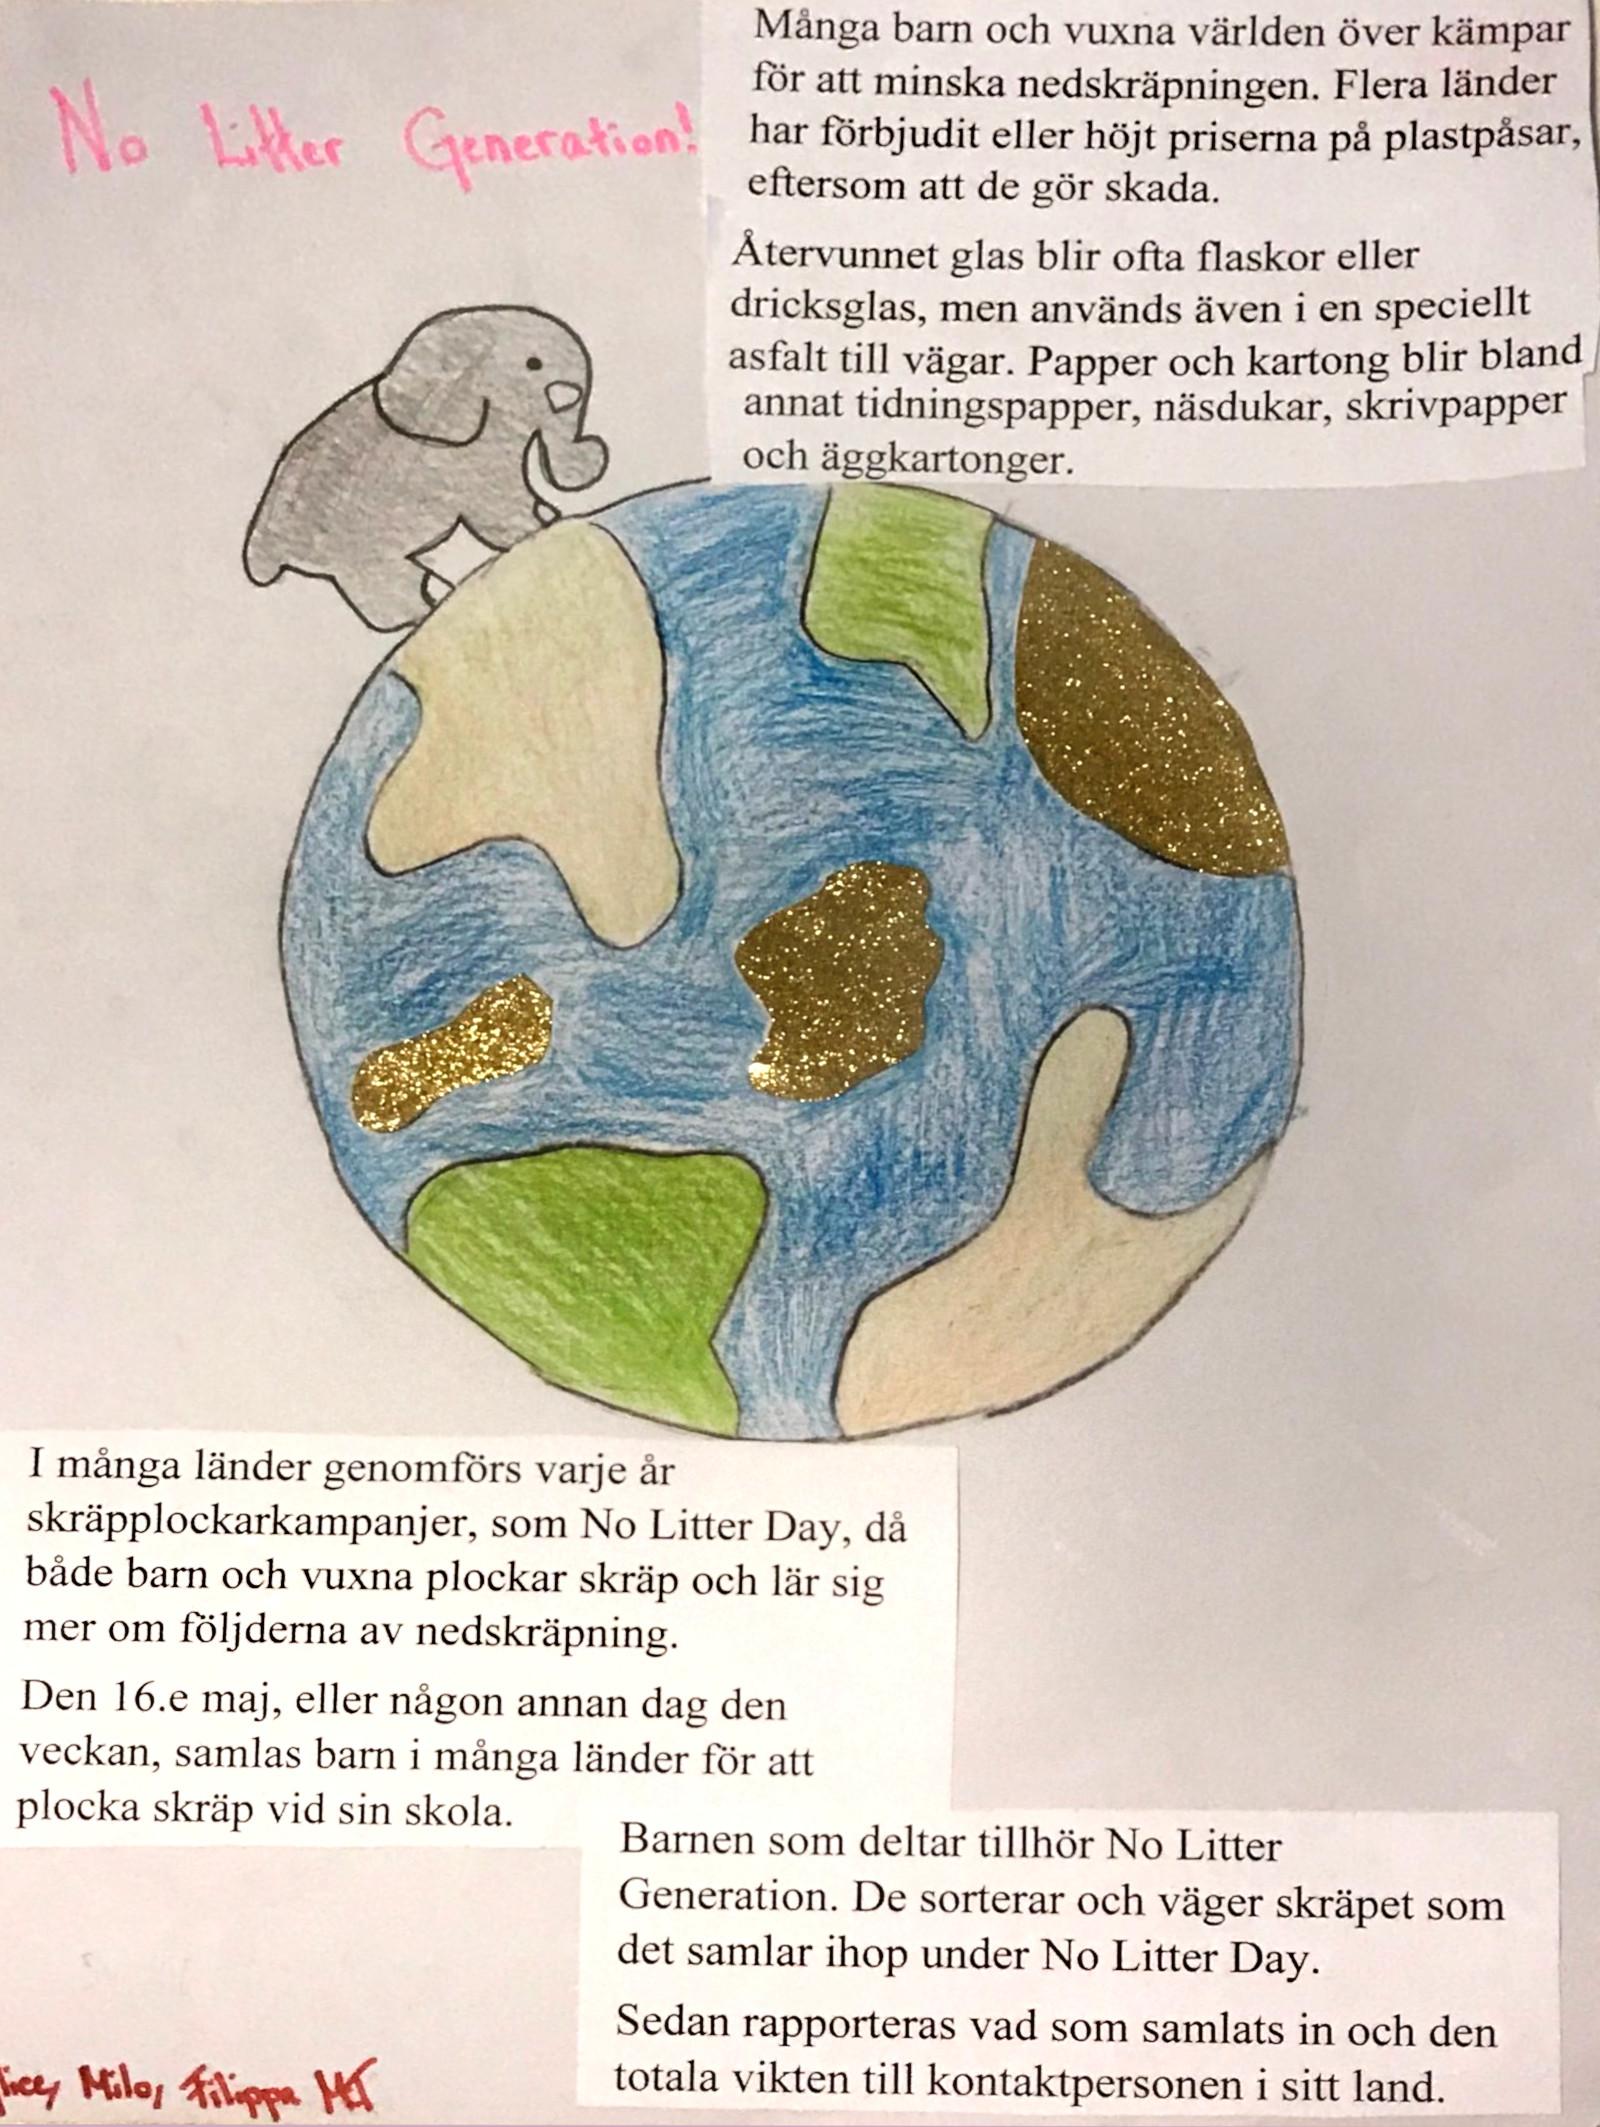 No Litter Generation!
Många barn och vuxna världen över kämpar
för att minska nedskräpningen. Flera länder
har förbjudit eller höjt priserna på plastpåsar,
eftersom att de gör skada.
Återvunnet glas blir ofta flaskor eller
dricksglas, men används även i en speciellt
asfalt till vägar. Papper och kartong blir bland
annat tidningspapper, näsdukar, skrivpapper
och äggkartonger.
I många länder genomförs varje år
skräpplockarkampanjer, som No Litter Day, då
både barn och vuxna plockar skräp och lär sig
mer om följderna av nedskräpning.
Den 16.e maj, eller någon annan dag den
veckan, samlas barn i många länder för att
plocka skräp vid sin skola.
Barnen som deltar tillhör No Litter
Generation. De sorterar och väger skräpet som
det samlar ihop under No Litter Day.
Sedan rapporteras vad som samlats in och den
totala vikten till kontaktpersonen i sitt land.
Milo, Filippa